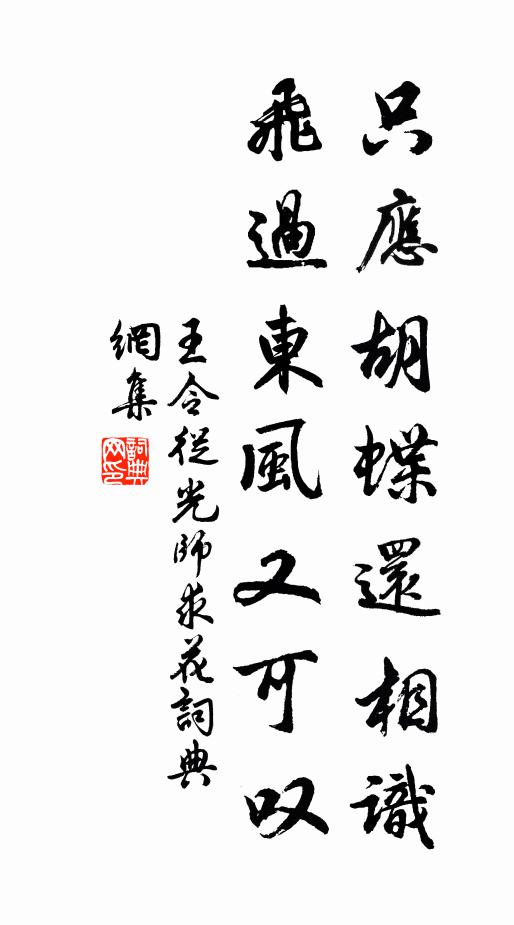 只應胡蝶還相識
飛過東風又可叹
王令從光師求花詞典
網集
詞典
网印